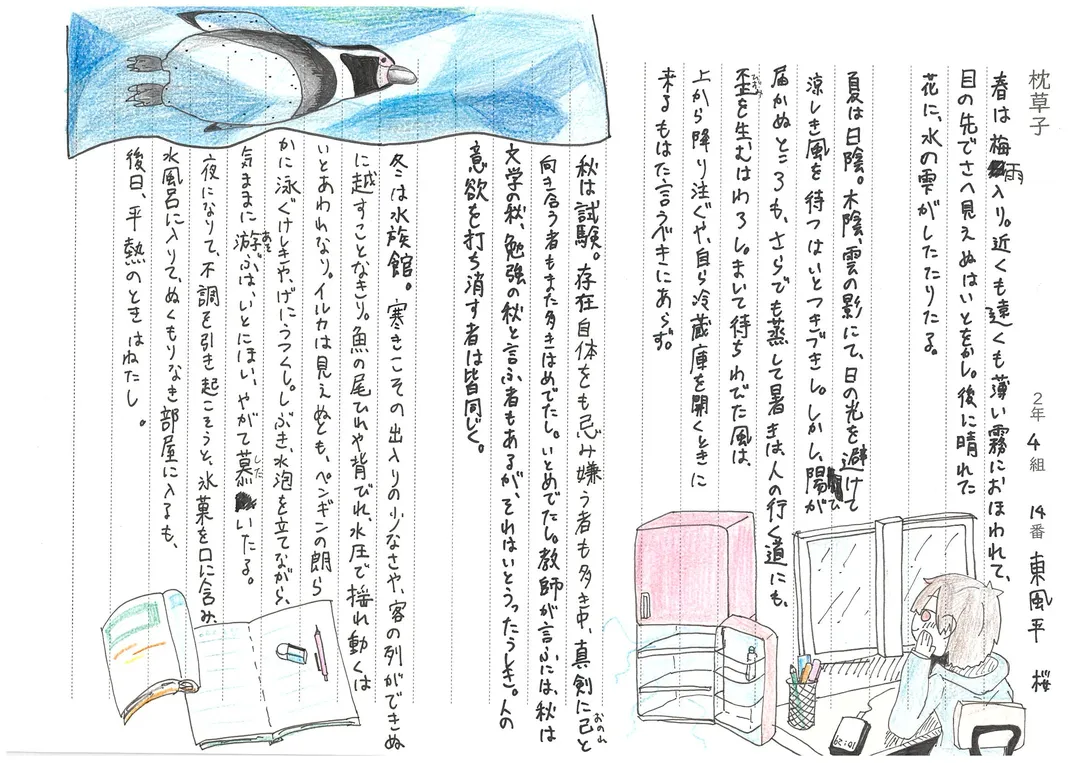 枕草子
2年 4組 14番 東風平 桜
春は梅雨入り。近くも遠くも薄い霧におほわれて、
目の先でさへ見えぬはいとをかし。後に晴れた
花に、水の雫がしたたりたる。
夏は日陰。木陰、雲の影にて、日の光を避けて
涼しき風を待つはいとつきづきし。しかし、陽が
届かぬところも、さらでも蒸して暑きは、人の行く道にも、
歪を生むはわろし。まいて待ちわびた風は、
上から降り注ぐや、自ら冷蔵庫を開くときに
来るもはた言うべきにあらず。
秋は試験。存在自体をも忌み嫌う者も多き中、真剣に己と
おのれ
向き合う者もまた多きはめでたし。いとめでたし。教師が言ふには、秋は
文学の秋、勉強の秋と言ふ者もあるが、それはいとうったうしき。人の
意欲を打ち消す者は皆同じく。
冬は水族館。寒きこその出入りの少なさや、客の列ができぬ
に越すことなきり。魚の尾ひれや背びれ、水圧で揺れ動くは
いとあわれなり。イルカは見えぬとも、ペンギンの朗ら
かに泳ぐけしきや、げにうつくし。しぶき、水泡を立てながら、
気ままに游ぶは、いとにほい、やがて慕いたる。
あそ
した
夜になりて、不調を引き起こそうと、氷菓を口に含み、
水風呂に入りて、ぬくもりなき部屋に入るも、
後日、平熱のときはねたし。
10:29